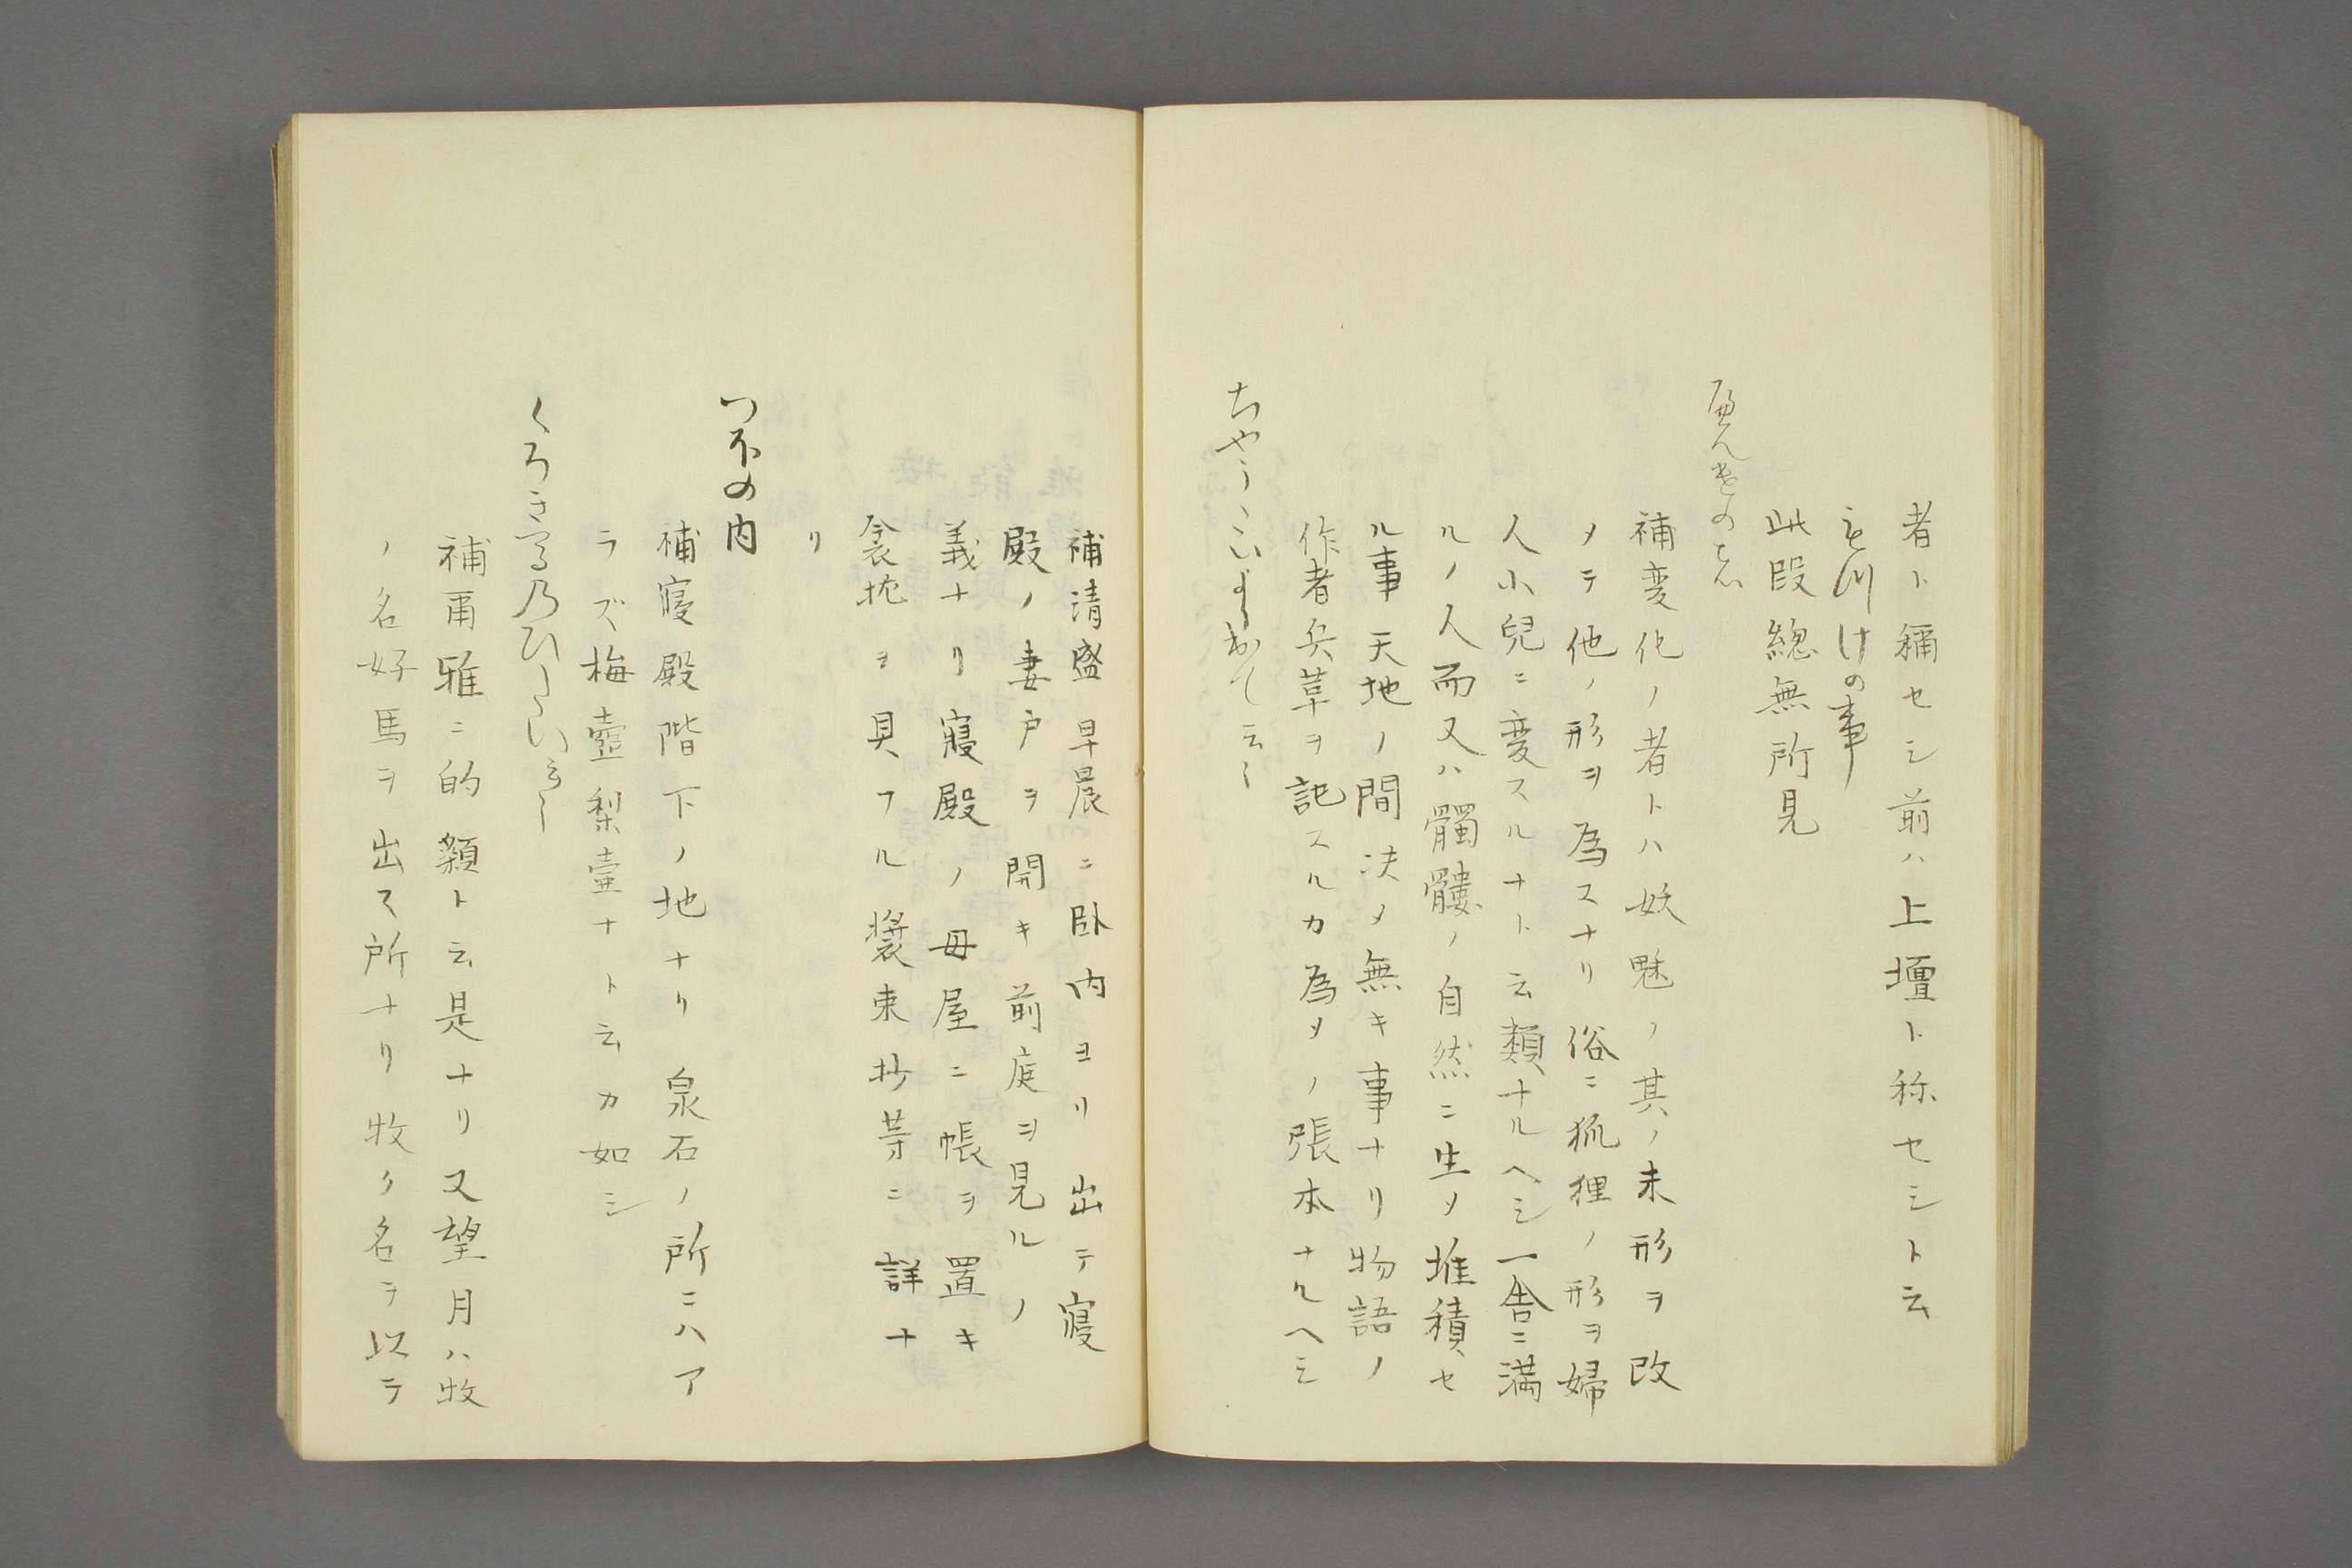 者ト稱セシ前ハ上壇ト称セシト云
もつけの事
此段總無所見
へんけのもの
補変化ノ者トハ妖魅ノ其ノ未形ヲ改
メテ他ノ形ヲ為スナリ俗ニ狐狸ノ形ヲ婦
人小兒ニ変スルナト云類ナルヘシ一舎ニ満
ルノ人而又ハ髑髏ノ自然ニ生メ堆積セ
ル事天地ノ間决メ無キ事ナリ物語ノ
作者兵革ヲ記スルカ為メノ張本ナルヘシ
ちやうたいより出て云々
補清盛早晨ニ卧内ヨリ出テ寝
殿ノ妻戸ヲ開キ前庭ヲ見ルノ
義ナリ寝殿ノ母屋ニ帳ヲ置キ
衾枕ヲ具フル装束抄等ニ詳ナ
リ
つほの内
補寝殿階下ノ地ナリ泉石ノ所ニハア
ラズ梅壺梨壷ナト云カ如シ
くろき馬のひたい
補甭雅ニ的顙ト云是ナリ又望月ハ牧
ノ名好馬ヲ出ス所ナリ牧ノ名ヲ以テ